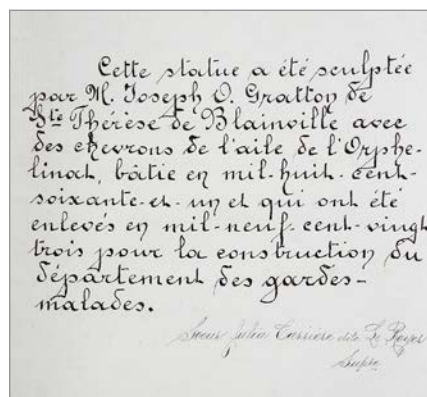 Cette statue a été sculptée
par M. Joseph O. Gratton de
Ste Thérèse de Blainville avec
des chevrons de l'aile de l'Orphe-
linat, bâtie en mil-huit-cent-
soixante-et-un et qui ont été
enlevés en mil-neuf-cent-vingt
trois pour la construction du
département des gardes-
malades.
Soeur Julia Carrière dite Le Royer
Supre